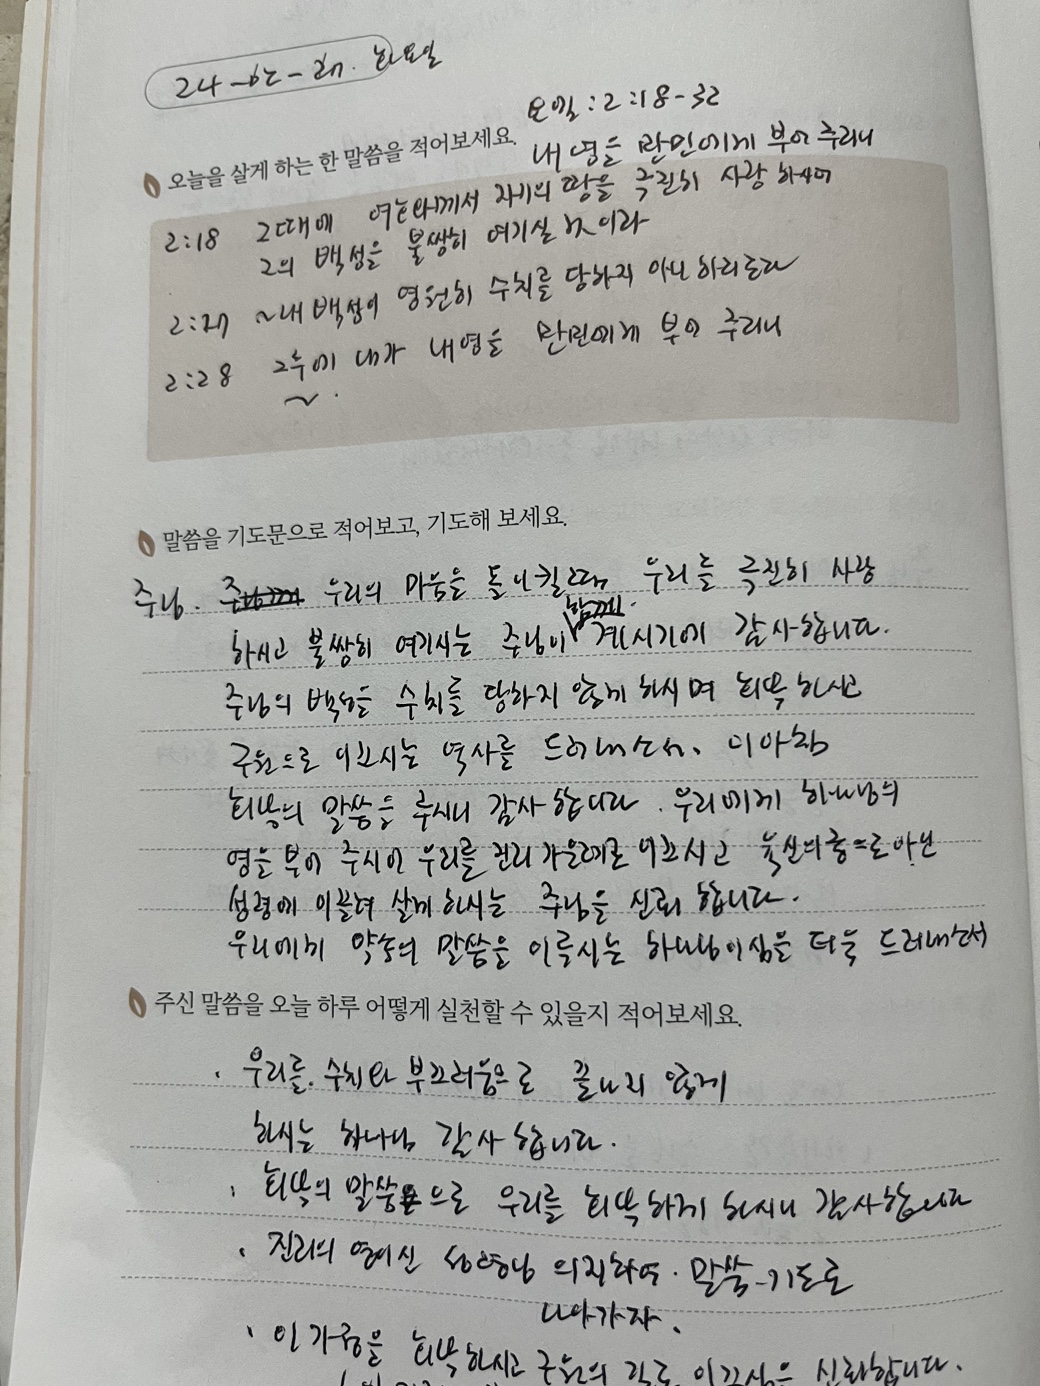 화요일
요엘 : 2 : 18 - 32
내 영을 만민에게 부어 주리니
오늘을 살게 하는 한 말씀을 적어보세요.
2:18 그때에 여호와께서 자기의 땅을 극진히 사랑 하시어
그의 백성을 불쌍히 여기실 것이라
2:27 ~내 백성이 영원히 수치를 당하지 아니 하리로다
2:28 그후에 내가 내 영을 만민에게 부어 주리니
~.
말씀을 기도문으로 적어보고, 기도해 보세요.
주님. 우리의 마음을 돌이킬때 우리를 극진히 사랑
하시고 불쌍히 여기시는 주님이 함께 계시기에 감사합니다.
주님의 백성을 수치를 당하지 않게 하시며 회복 하시고
구원으로 이끄시는 역사를 드러내소서. 이아침
회복의 말씀을 주시니 감사 합니다. 우리에게 하나님의
영을 부어 주시어 우리를 진리 가운데로 이끄시고 육신의종으로아닌
성령에 이끌려 살게 하시는 주님을 신뢰 합니다.
우리에게 약속의 말씀을 이루시는 하나님이심을 더욱 드러내소서
주신 말씀을 오늘 하루 어떻게 실천할 수 있을지 적어보세요.
· 우리를. 수치와 부끄러움으로 끝나지 않게
하시는 하나님 감사 합니다.
· 회복의 말씀으로 우리를 회복하게 하시니 감사합니다
· 진리의 영이신 성령님 의지하여. 말씀-기도로
나아가자.
· 이 가정을 회복하시고 구원의 길로 이끄심을 신뢰합니다.